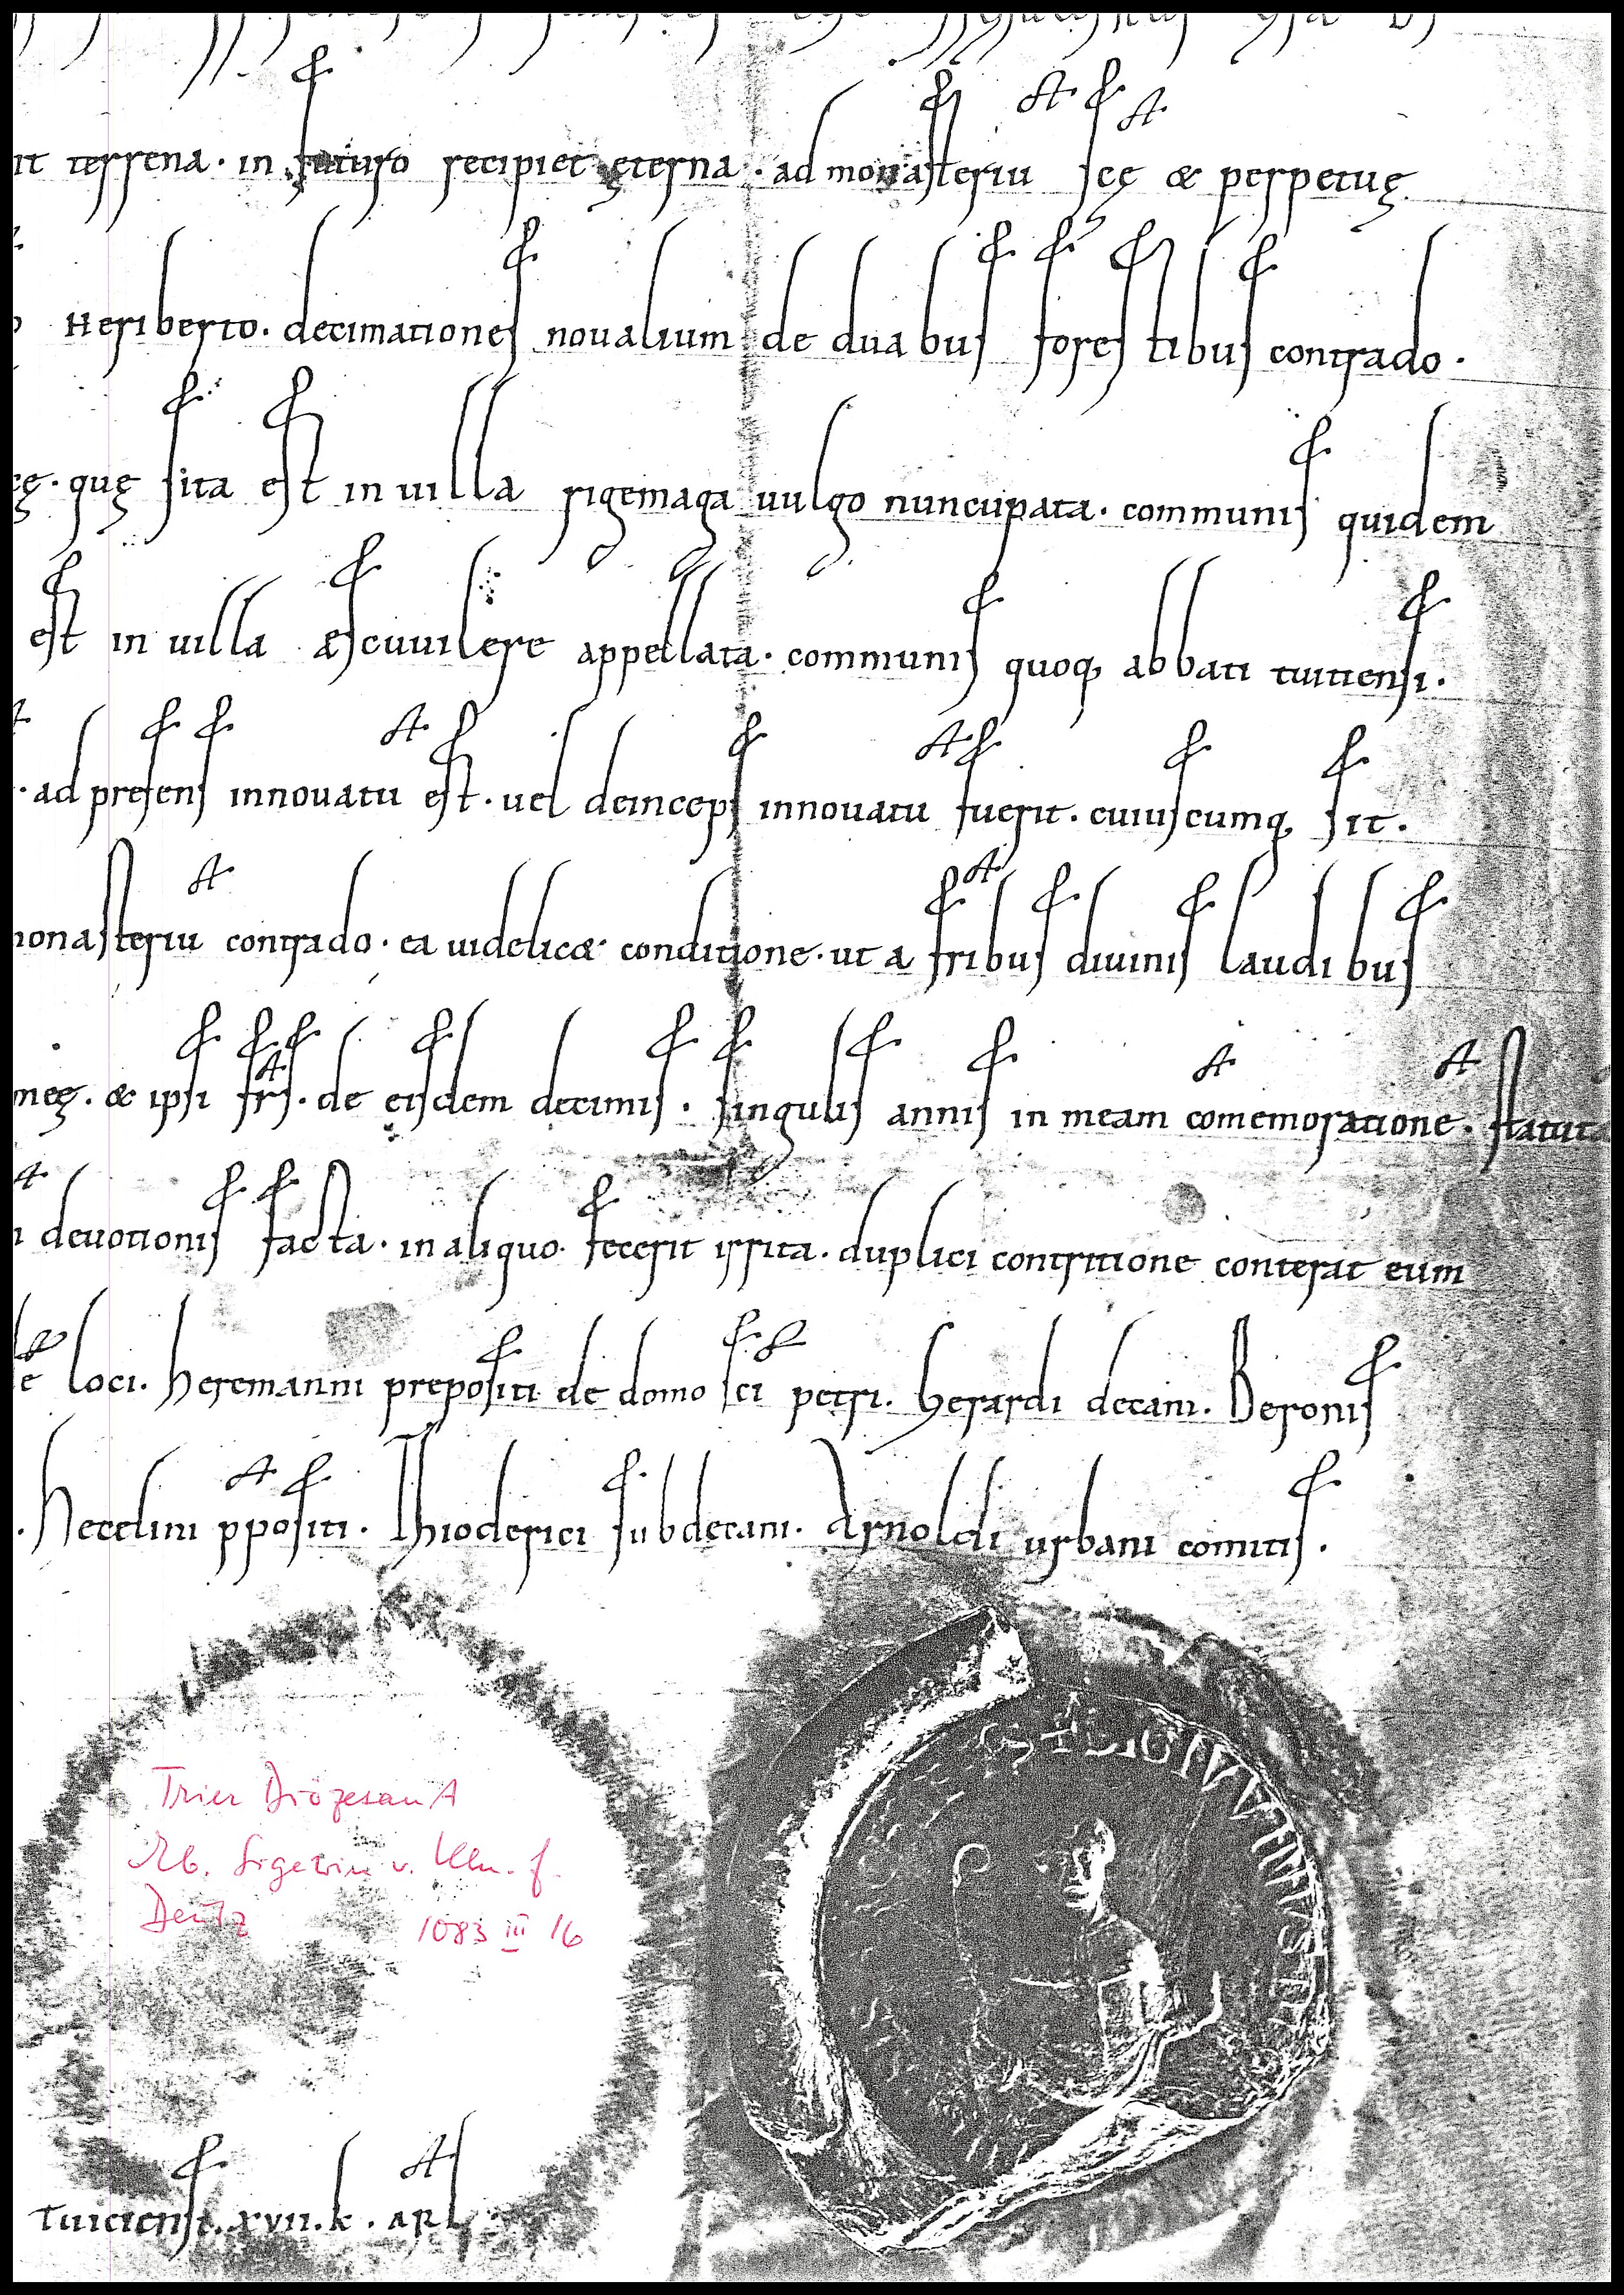 it terrena · in futuro recipiet ęterna · ad monasteriū scę & perpetuę
Heriberto · decimationes noualium de duabus forestibus contrado ·
quę sita est in uilla rigemaga uulgo nuncupata · communis quidem
est in uilla æscuuilere appellata · communis quoq; abbati tuitiensi ·
· ad presens innouatū est · uel deinceps innouatū fuerit · cuiuscumq; sit ·
monasteriū contrado · ea uidelicæ conditione · ut a fribus diuinis laudibus
& ipsi frs · de eisdem decimis · singulis annis in meam comemorationē · statuta
deuotionis facta · in aliquo fecerit irrita · duplici contritione conterat eum
loci · heremanni prepositi de domo sci petri · herardi decani · Beronis
· hecelini ppositi · Thioderici subdecani · Arnoldi urbani comitis ·
SIGEVVINVS DI
Trier Diözesan A
Eb. Sigewin v. Köln f.
Deutz 1083 III 16
Tuiciensi · xvii · k · apRl